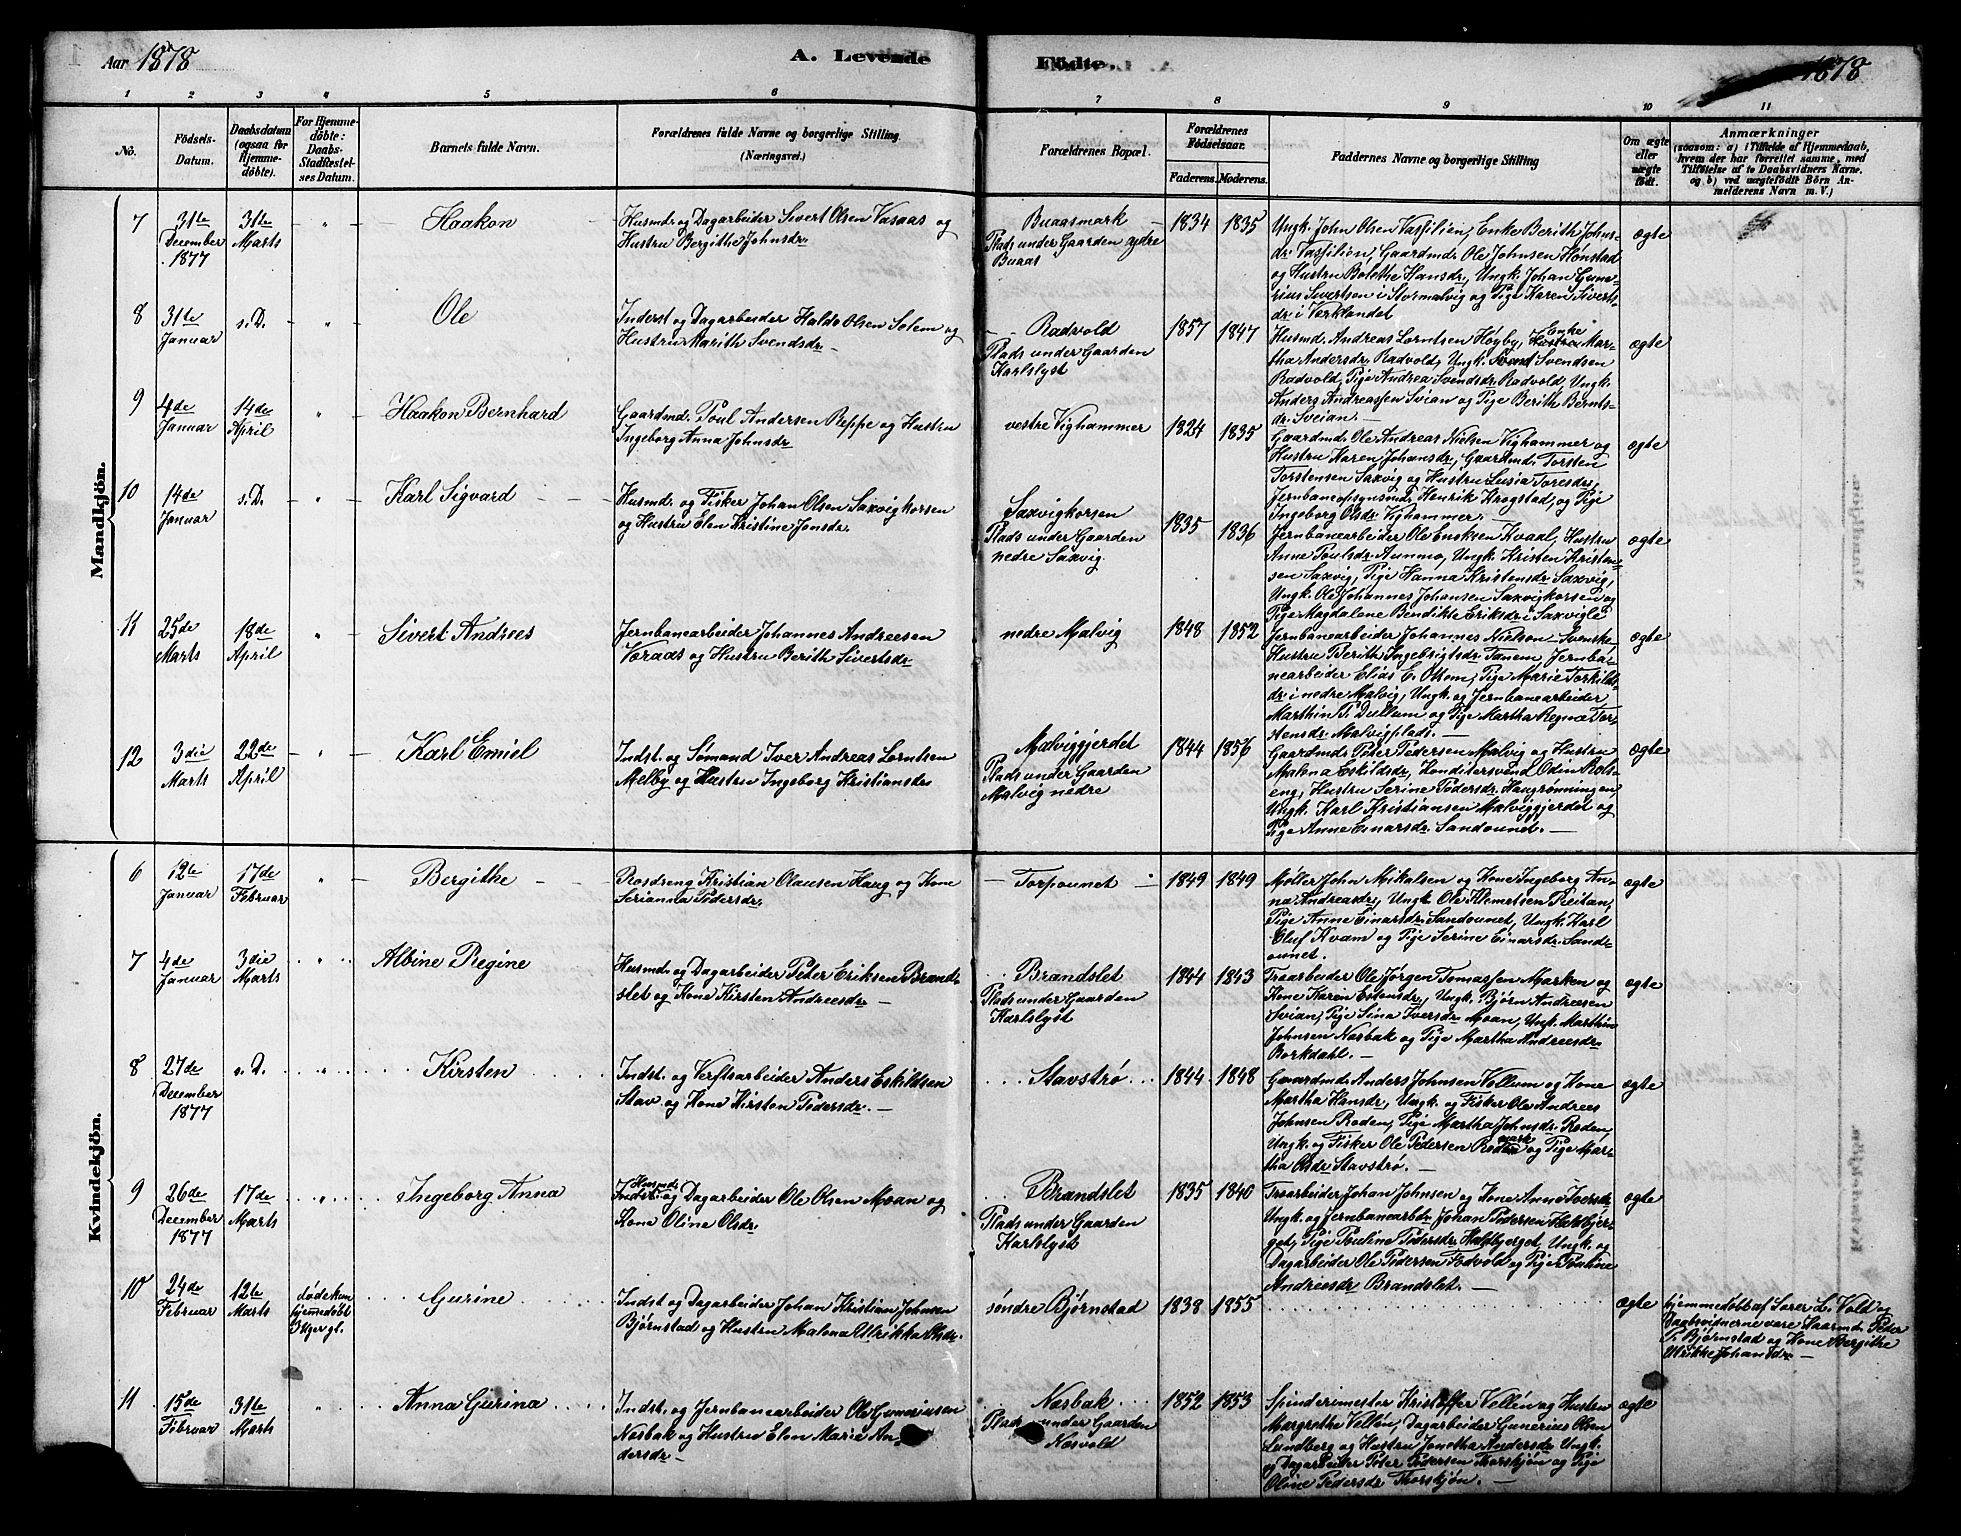 Aar 1878
A. Levende
Födte.
1878
1 2 3 4 5 6 7 8 9 10 11
No.
Födsels-
Datum.
Daabsdatum
(ogsaa for
Hjemme-
döbte).
For Hjemme-
döbte:
Daabs-
Stadfæstel-
ses Datum.
Barnets fulde Navn.
Forældrenes fulde Navne og borgerlige Stilling.
(Næringsvei.)
Forældrenes Bopæl.
Forældrenes
Födselsaar.
Faderens.
Moderens.
Faddernes Navne og borgerlige Stilling
Om ægte
eller
uægte
födt.
Anmærkninger
(saasom: a) i Tilfælde af Hjemmedaab,
hvem der har forrettet samme, med
Tilföielse af to Daabsvidners Navne.
og b) ved uægtefödt Börn An-
melderens Navn m. V.)
Mandkjön.
7
31te
December
1877
31te
Marts
Haakon
Husmd. og Dagarbeider Sivert Olsen Vasaas og
Hustru Bergithe Johnsdr.
Buaasmark
Plads under Gaarden øvdre
Buaas
1834
1835
Ungk. John Olsen Vasslien, Enke Berith Johns-
dr. Vasslien, Gaardmd. Ole Johnsen Hønstad
og Hustru Bolethe Hansdr., Ungk. Johan Gune-
rius Sivertsen i Stormalvig og Pige Karen Siverts-
dr. i Verklandet
ægte
8
31te
Januar
s. D.
Ole
Inderst og Dagarbeider Haldo Olsen Solem og
Hustru Marith Svendsdr.
Radvold
Plads under Gaarden
Karlslyst
1857
1847
Husmd. Andreas Lorntsen Høyby, Enke Mar-
tha Andersdr. Radvold, Ungk. Svend Svendsen
Radvold, Pige Andrea Svendsdr. Radvold, Ungk.
Anders Andreassen Svian og Pige Berith Bernts-
dr. Sveian.
ægte
9
4de
Januar
14de
April
Haakon Bernhard
Gaardmd. Poul Andersen Reppe og Hustru
Ingeborg Anna Johnsdr
vestre Vighammer
1824
1835
Gaardmd. Ole Andreas Nielsen Vighammer og
Hustru Karen Johansdr., Gaardmd. Torsten
Torstensen Saxvig og Hustru Lusia Toresdr.,
Jernbaneopsynsmd. Henrik Krogstad, og Pige
Ingeborg Olsdr. Vighammer.
ægte
10
14de
Januar
s. D.
Karl Sigvard
Husmd. og Fisker Johan Olsen Saxvigkorsen
og Hustru Elen Kristine Jonsdr.
Saxvigkorsen
Plads under Gaarden
nedre Saxvig
1835
1836
Jernbanearbeider Ole Eriksen Kvaal, Hustru
Anne Poulsdr. Aunmo, Ungk. Kristen Kristen-
sen Saxvig, Pige Hanna Kristensdr. Saxvig,
Ungk. Ole Johannes Johansen Saxvigkorsen og
Pige Magdalene Bendikte Eriksdr. i Saxvigle
ægte
11
25de
Marts
18de
April
Sivert Andreas
Jernbanearbeider Johannes Andreesen
Voraas og Hustru Berith Sivertsdr
nedre Malvig
1848
1852
Jernbanearbeider Johannes Nielson Svenske,
Hustru Berith Ingebrigtsdr. Tanem, Jernba-
nearbeider Elias E. Olsen, Pige Marie Torkilds-
dr. i nedre Malvig, Ungk. og Jernbanearbeider
Marthin P. Dullum og Pige Martha Regine Tor-
stensdr. Malvigplads.
ægte
12
3die
Marts
22de
April
Karl Emiel
Indst. og Sømand Iver Andreas Lorntsen
Melby og Hustru Ingeborg Kristiansdr
Malviggjerdet
Plads under Gaarden
Malvig nedre
1844
1856
Gaardmd. Peter Pedersen Malvig og Hustru
Malena Eskildsdr., Konditersvend Odin Rols-
eng, Hustru Serine Pedersdr. Haugrønningen,
Ungk. Karl Kristiansen Malviggjerdet og
Pige Anne Einarsdr. Sandounet.
ægte
Kvindekjön.
6
12te
Januar
17de
Februar
Bergithe
Rosdreng Kristian Olausen Haug og Kone
Serianna Pedersdr.
Torpounet
1849
1849
Møller John Mikalsen og Kone Ingeborg An-
na Andreasdr., Ungk. Ole Klemetsen Reitan,
Pige Anne Einarsdr. Sandounet, Ungk. Karl
Oluf Kvam og Pige Serine Einarsdr. Sand-
ounet.
ægte
7
4de
Januar
3die
Marts
Albine Regine
Husmd. og Dagarbeider Peter Eriksen Brand-
slet og Kone Kirsten Andreesdr.
Brandslet
Plads under Gaarden
Karlslyst
1844
1843
Træarbeider Ole Jørgen Tomassen Marken og
Kone Karen Estensdr., Ungk. Bjørn Andreesen
Svian, Pige Sina Iversdr. Moan, Ungk. Marthin
Johnsen Nasbak og Pige Martha Andreesdr.
Borkdahl.
ægte
8
27de
December
1877
s. D.
Kirsten
Indst. og Verftsarbeider Anders Eskildsen
Stav og Kone Kirsten Pedersdr.
Stavstrø
1844
1848
Gaardmd. Anders Johnsen Vollum og Kone
Martha Hansdr., Ungk. og Fisker Ole Andreas
Johnsen Roden, Pige Martha Johnsdr. Roden,
Ungk. og Fisker Ole Pedersen Rodmark og Pige Mar-
tha Olsdr. Stavstrø.
ægte
9
26de
December
1877
17de
Marts
Ingeborg Anna
Husmd.
Indst. og Dagarbeider Ole Olsen Moan og
Kone Oline Olsdr.
Brandslet
Plads under Gaarden
Karlslyst
1835
1840
Træarbeider Johan Johnsen og Kone Anne Iversdr,
Ungk. og Jernbanearbdr. Johan Pedersen Halsbjer-
get, Pige Pouline Pedersdr. Halsbjerget, Ungk. og
Dagarbeider Ole Pedersen Fodvold og Pige Pouline
Andreesdr. Brandslet.
ægte
10
24de
Februar
12te
Marts
døde kun
hjemmedøbt
3 Uger gl.
Gurine
Indst. og Dagarbeider Johan Kristian Johnsen
Bjørnstad og Hustru Malena Ulrikke Olsdr.
søndre Bjørnstad
1838
1855
ægte
hjemmedøbt af Lærer L. Vold og
Daabsvidnerne vare Gaardmd. Peder
P. Bjørnstad og Kone Bergithe
Ulrikke Johan Pdr.
11
15de
Februar
31te
Marts
Anna Gurina
Indst. og Jernbanearbeider Ole Guneriussen
Nasbak og Hustru Elen Marie An-
dersdr.
Nasbak
Plads under Gaarden
Nasvold
1852
1853
Spinderimester Kristoffer Vellén og Hustru
Margrethe Vellén, Dagarbeider Gunerius Olsen
Lundberg og Hustru Jonetha Andersdr. Ungk.
og Dagarbeider Peter Pedersen Thorskjøn og Pige
Oline Pedersdr. Thorskjøn.
ægte